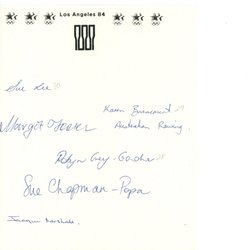 Los Angeles 84
Sue Lee
Karen Brancourt
Margot Foster
Australian Rowing.
Robyn Grey-Gardner
Sue Chapman-Popa